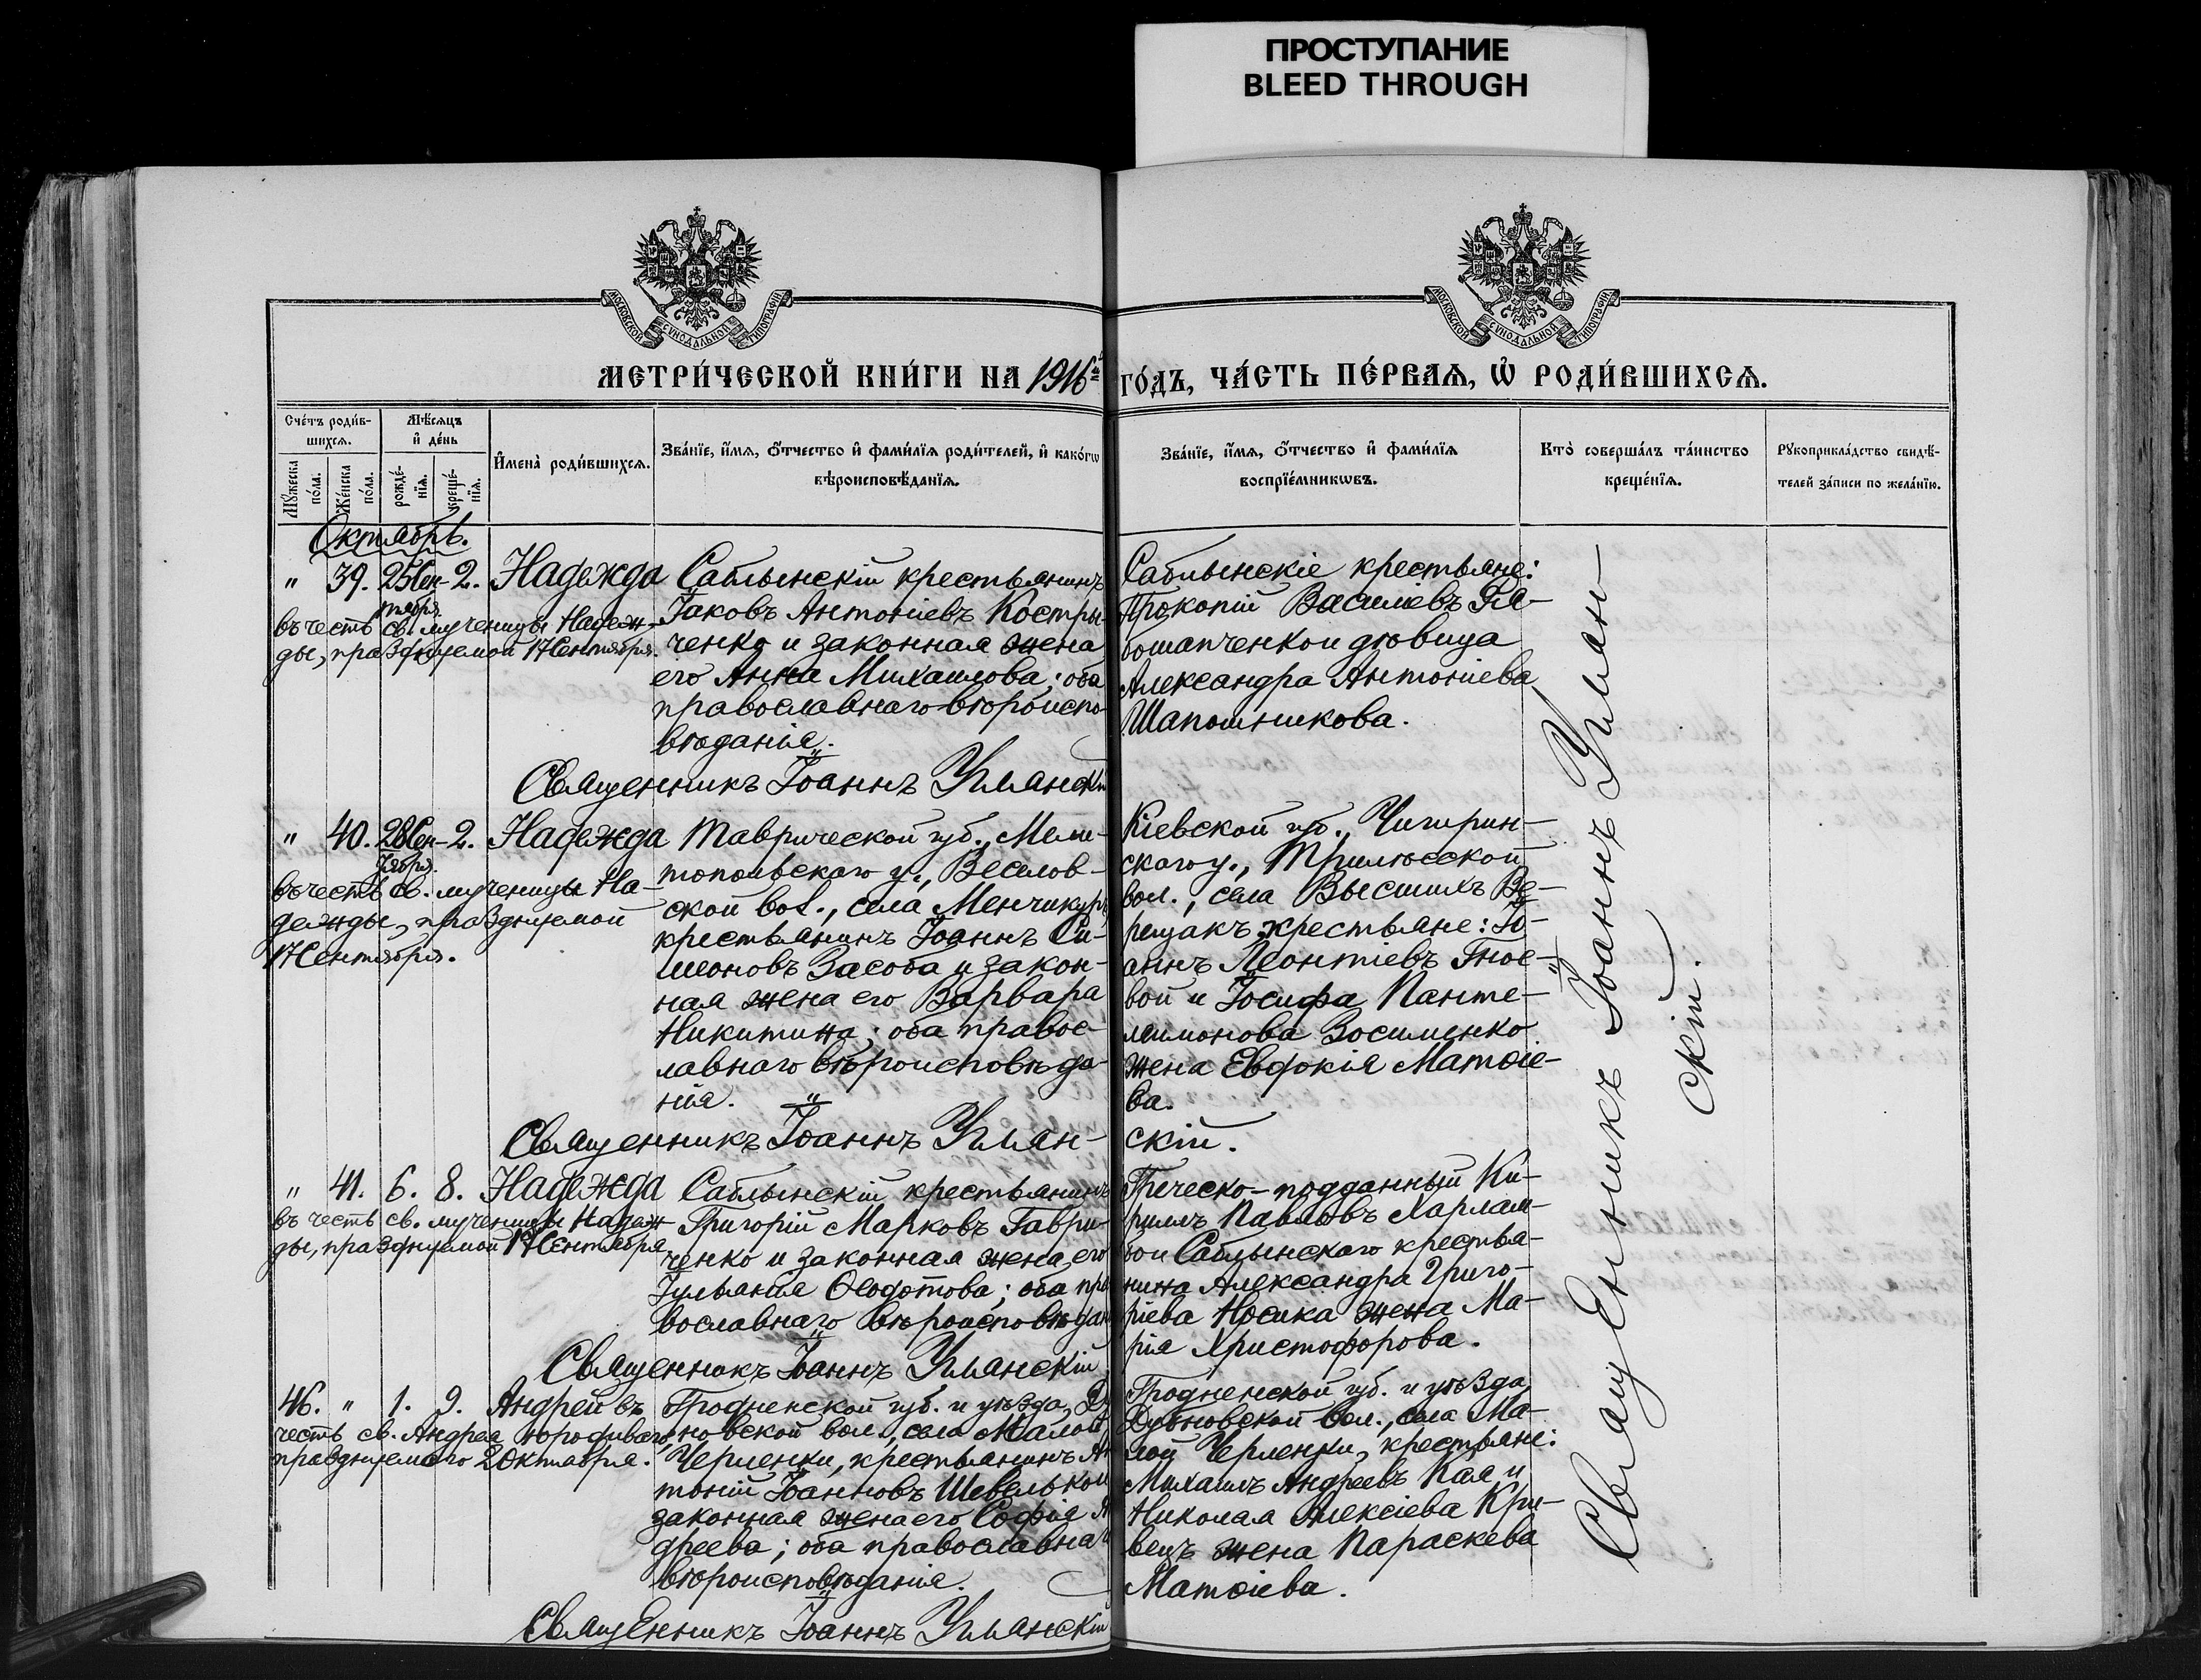 ПРОСТУПАНИЕ
BLEED THROUGH
МОСКОВСКОЙ СѴНОДАЛЬНОЙ ТИПОГРАФІИ
МОСКОВСКОЙ СѴНОДАЛЬНОЙ ТИПОГРАФІИ
МЕТРИ́ЧЕСКОЙ КНИ́ГИ НА 1916й ГО́ДЪ, ЧА́СТЬ ПЕ́РВАѦ, Ѡ҆ РОДИ́ВШИХСѦ.
Сче́тъ роди́в-
шихсѧ.
Мꙋжеска
по́ла.
Же́нска
по́ла.
Мѣ́сѧцъ
и҆ де́нь
рожде́-
нїѧ.
креще́-
нїѧ.
И҆мена̀ роди́вшихсѧ.
Зва́нїе, и҆́мѧ, ѻ҆́тчество и҆ фами́лїѧ роди́телей, и҆ како́гѡ
вѣроисповѣ́данїѧ.
Зва́нїе, и҆́мѧ, ѻ҆́тчество и҆ фами́лїѧ
воспрїе́мникѡвъ.
Кто̀ соверша́лъ та́инство
креще́нїѧ.
Рꙋкоприкла́дство свидѣ́-
телей за́писи по жела́нїю.
Октябрь.
" 39. 25 Сен- 2. Надежда
тября
въ честь св. мученицы Надеж-
ды, празднуемой 17 Сентября.
Саблынскій крестьянинъ
Іаковъ Антоніевъ Костры-
ченко и законная жена
его Анна Михаилова; оба
православнаго вѣроиспо-
вѣданія.
Саблынскіе крестьяне:
Прокопій Василіевъ
и дѣвица
Александра Антоніева
Шапошникова.
Священникъ Іоаннъ Уманскій
" 40. 28 Сен- 2. Надежда
тября.
въ честь св. мученицы На-
дежды, празднуемой
17 Сентября.
Таврической губ., Мели-
топольскаго у., Веселов-
ской вол., села Менчикуръ
крестьянинъ Іоаннъ Си-
меоновъ Засоба и закон-
ная жена его Варвара
Никитина; оба правос-
лавнаго вѣроисповѣда-
нія.
Кіевской губ., Чигирин-
скаго у., Трилѣсской
вол., села Высшихъ Ве-
рещакъ крестьяне: Іо-
аннъ Леонтіевъ Гное-
вой и Іосифа Панте-
леимонова Зосименко
жена Евдокія Матѳіе-
ва.
Священникъ Іоаннъ Уман-
скій.
" 41. 6. 8. Надежда
въ честь св. мученицы Надеж-
ды, празднуемой 17 Сентября.
Саблынскій крестьянинъ
Григорій Марковъ Гаври-
ченко и законная жена его
Іульянія Ѳеодотова; оба пра-
вославнаго вѣроисповѣдан
Греческо-подданный Ки-
риллъ Павловъ Харлам-
Саблынскаго крестья-
нина Александра Григо-
ріева Носика жена Ма-
рія Христофорова.
Священникъ Іоаннъ Уманскій
46. " 1. 9. Андрей въ
честь св. Андрея юродиваго,
празднуемаго 2 Октября.
Гродненской губ. и уѣзда, Ду
новской вол., села Малой
Черленки, крестьянинъ Ан
тоній Іоанновъ Шевелько и
законная жена его Софія Ан
дреева; оба православнаго
вѣроисповѣданія.
Гродненской губ. и уѣзда,
Дубновской вол., села Ма-
лой Черленки, крестьяне:
Михаилъ Андреевъ Кая и
Николая Алексіева Кри-
вецъ жена Параскева
Матѳіева.
Священникъ Іоаннъ Уманскій
Священникъ Іоаннъ Уман-
скій.